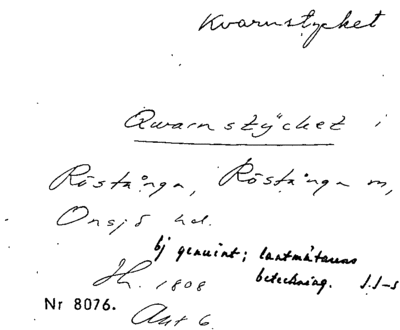 Kvarnstycket
Qwarnstÿcket i
Röstånga, Röstånga sn,
Onsjö hd.
ej genuint; lantmätarens
Jh. 1808 beteckning. J.J-s
Nr 8076.
Akt 6.